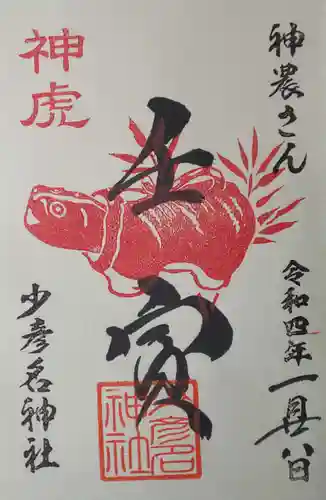 神農さん
令和四年一月八日
壬寅
神虎
少彦名神社
少彦名
神社